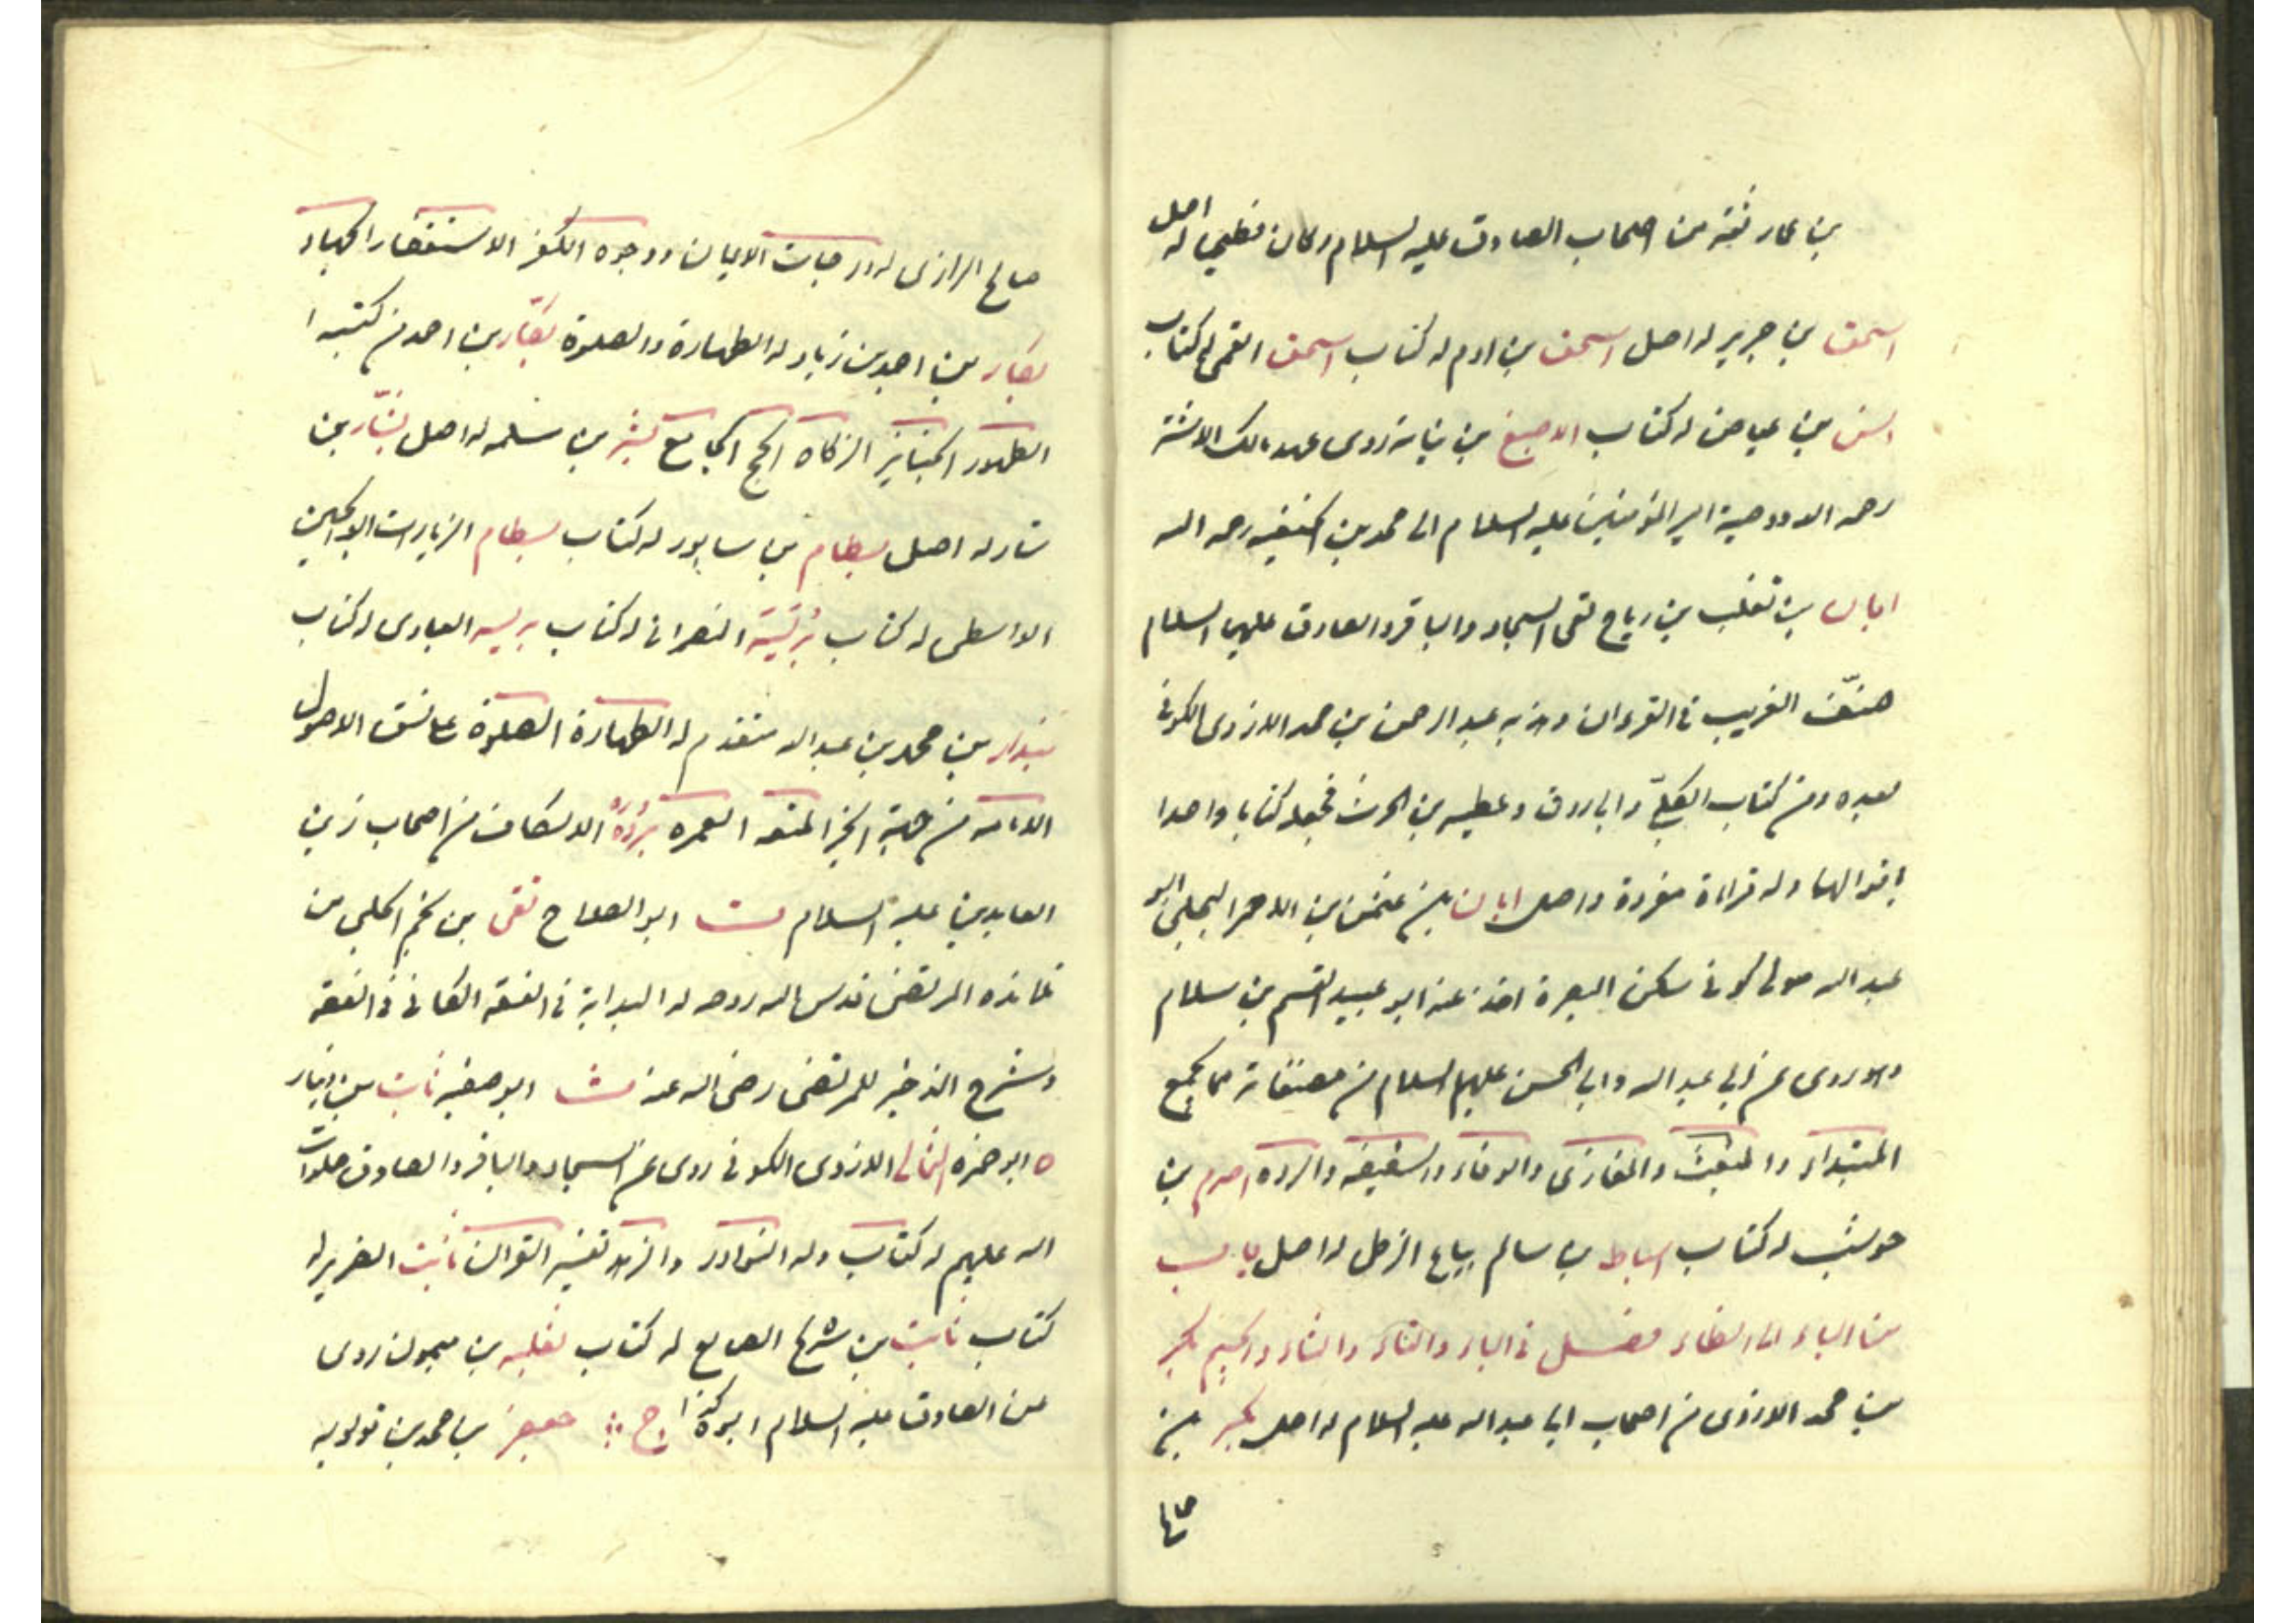 بن عمار ثقة من اصحاب الصادق عليه السلام وكان فطحيا له اصل
اسحق بن جرير له اصل اسحق بن ادم له كتاب اسحق القمى له كتاب
انس بن عياض له كتاب الاصبغ بن نباته روى عهد مالك الاشتر
رحمه الله ووصية امير المؤمنين عليه السلام الى محمد بن الحنفيه رحمه الله
ابان بن تغلب بن رياح لقى السجاد والباقر والصادق عليهم السلام
صنّف الغريب فى القرءان وهذبه عبد الرحمن بن محمد الازدى الكوفى
بعده ومن كتاب الكلبىّ وابى روق وعطيه بن الحرث فجعله كتابا واحدا
وله قراءة مفردة واصل ابان بن عثمن بن الاحمر البجلى ابو
عبد الله مولى كوفى سكن البصرة اخذ عنه ابو عبيد القسم بن سلام
وهو روى عن ابى عبد الله وابى الحسن عليهما السلام من مصنفاته مما يجمع
المبتداء والمبعث والمغازى والوفاء والسقيفه والرده اصرم بن
حوشب له كتاب اسباط بن سالم بياع الزطى له اصل باب
من الباء الى الظاء فصل فى الباء والتاء والثاء والجيم بكر
بن محمد الازدى من اصحاب ابى عبد الله عليه السلام له اصل بكر بن
صالح
صالح الرازى له درجات الايمان ووجوه الكفر الاستغفار الجهاد
بكار بن احمد بن زياد له الطهارة والصلوة بكّار بن احمد من كتبه
الطهور الجنايز الزكاة الحج الجامع بشر بن سلمه له اصل بشّار بن
له اصل بسطام بن سابور له كتاب بسطام الزيارات ابو الحسين
الواسطى له كتاب بُرَيَة النصرانى له كتاب بريه العبادى له كتاب
بندار بن محمد بن عبد الله متقدم له الطهارة الصلوة على نسق الاصول
الامامه من جهة الخبر المتعه العمره بُردُه الاسكاف من اصحاب زين
العابدين عليه السلام ت ابو الصلاح تقى بن نجم الحلبى من
تلامذه المرتضى قدس الله روحه له البداية فى الفقه الكافى فى الفقه
وشرح الذخيره للمرتضى رضى الله عنه ث ابو صفيه ثابت بن دينار
ه ابو حمزه الثمالى الازدى الكوفى روى عن السجاد والباقر والصادق صلوات
الله عليهم له كتاب وله النوادر والزهد تفسير القران ثابت الضرير له
كتاب ثابت بن شريح الصايغ له كتاب ثعلبه بن ميمون روى
عن الصادق عليه السلام كذا ج جعفر بن محمد بن قولويه